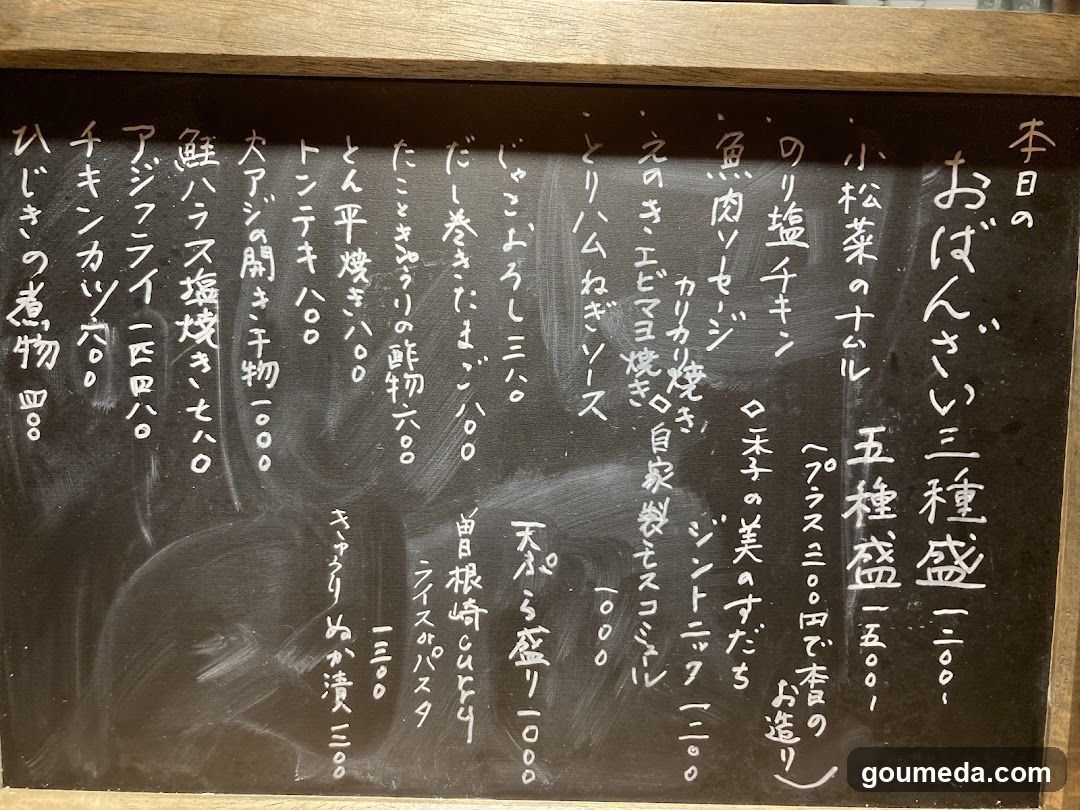 本日の
おばんざい三種盛 一二〇〇〜
五種盛 一五〇〇〜
(プラス三〇〇円で本日の
お造り)
・小松菜のナムル
・のり塩チキン
・魚肉ソーセージ
カリカリ焼き
・えのきエビマヨ焼き
・とりハムねぎソース
◇季の美のすだち
ジントニック 一二〇〇
◇自家製モスコミュール
一〇〇〇
じゃこおろし 三八〇
だし巻きたまご 八〇〇
たこときゅうりの酢物 六〇〇
とん平焼き 八〇〇
トンテキ 八〇〇
大アジの開き干物 一〇〇〇
鮭ハラス塩焼き 七八〇
アジフライ 一匹四八〇
チキンカツ 八〇〇
ひじきの煮物 四〇〇
天ぷら盛り 一〇〇〇
曽根崎curry
ライスorパスタ
一三〇〇
きゅうりぬか漬 三〇〇
goumeda.com